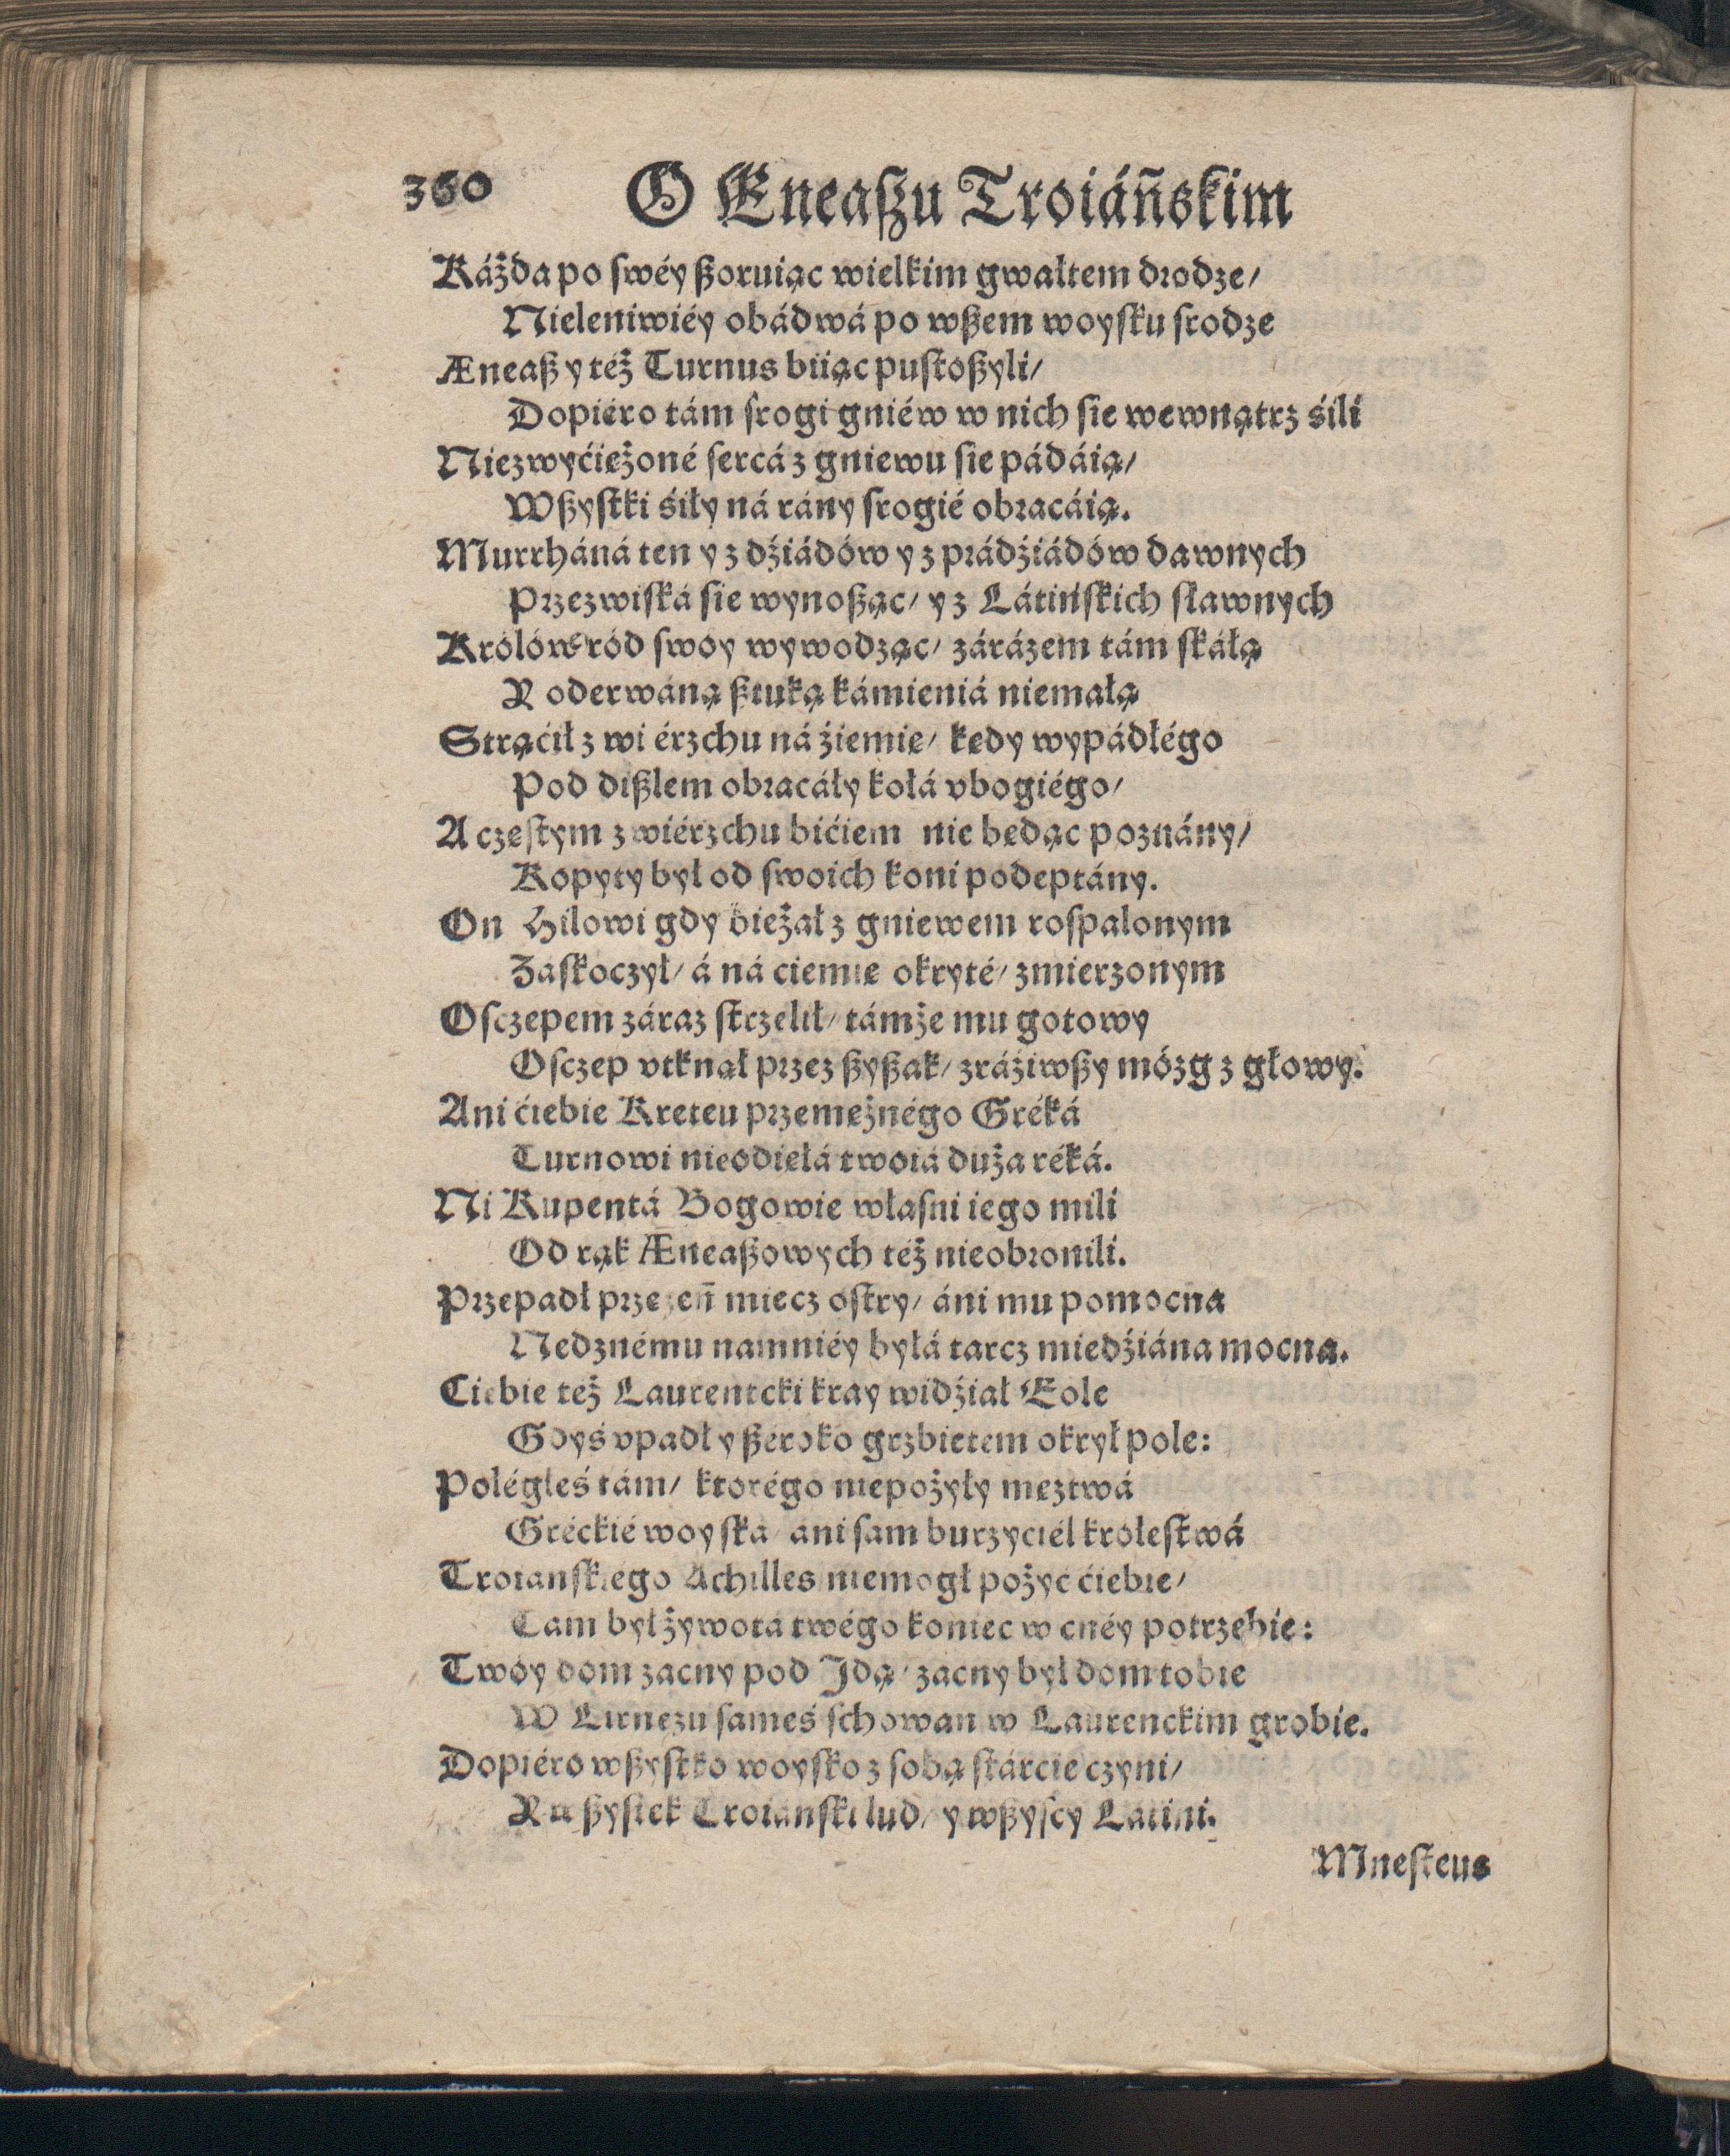 360 O Eneaßu Troiáñskim
Káżda po ſwéy ßoruiąc wielkim gwałtem drodze/
Nieleniwiéy obádwá po wßem woyſku ſrodze
Æneaß y téż Turnus biiąc puſtoßyli/
Dopiéro tám ſrogi gniéw w nich ſie wewnątrz śili
Niezwyćiężoné ſercá z gniewu ſie pádáią/
Wßyſtki śiły ná rány ſrogié obracáią.
Murrháná ten y z dźiádów y z prádźiádów dawnych
Przezwiſká ſie wynoßąc/ y z Látińſkich ſławnych
Królów ród ſwóy wywodząc/ zárázem tám ſkáłą
Y oderwáną ßtuką kámieniá niemałą
Strąćił z wi érzchu ná źiemię/ kędy wypádłégo
Pod dißlem obracáły kołá vbogiégo/
A częſtym z wiérzchu bićiem nie będąc poznány/
Kopyty był od ſwoich koni podeptány.
On Hilowi gdy bieżał z gniewem roſpalonym
Zaſkoczył/ á ná ciemię okryté/ zmierzonym
Oſczepem záraz ſtrzelił/ támże mu gotowy
Oſczep vtknął przez ßyßak/ zráźiwßy mózg z głowy.
Ani ćiebie Kreteu przemężnégo Gréká
Turnowi nieodięłá twoiá duża réká.
Ni Kupentá Bogowie właſni iego mili
Od rąk Æneaßowych téż nieobronili.
Przepadł przezeñ miecz oſtry/ áni mu pomocna
Nędznému namniéy byłá tarcz miedźiána mocna.
Ciebie też Laurentcki kray widźiał Eole
Gdyś vpadł y ßéroko grzbietem okrył pole:
Polégłeś tám/ ktorégo niepożyły męztwá
Gréckié woyſka/ ani ſam burzyciél króleſtwá
Troianſkiego Achilles niemogł pożyć ćiebie/
Tam był żywotá twégo koniec w cnéy potrzebie:
Twóy dom zacny pod Idą/ zacny był dom tobie
W Lirnezu ſameś ſchowan w Laurenckim grobie.
Dopiéro wßyſtko woyſko z ſobą ſtárcie czyni/
Y ßyſtek Troianſki lud/ y wßyſcy Latini.
Mneſteus